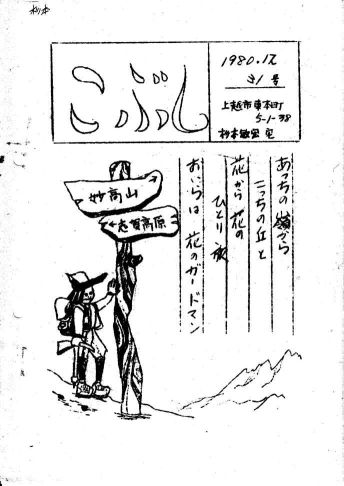 杉本
こぶし
1980.12
才1号
上越市東本町
5-1-38
杉本敏宏 宅
あっちの嶺から
こっちの丘と
花から花の
ひとり旅
おいらは 花のガードマン
妙高山
志賀高原